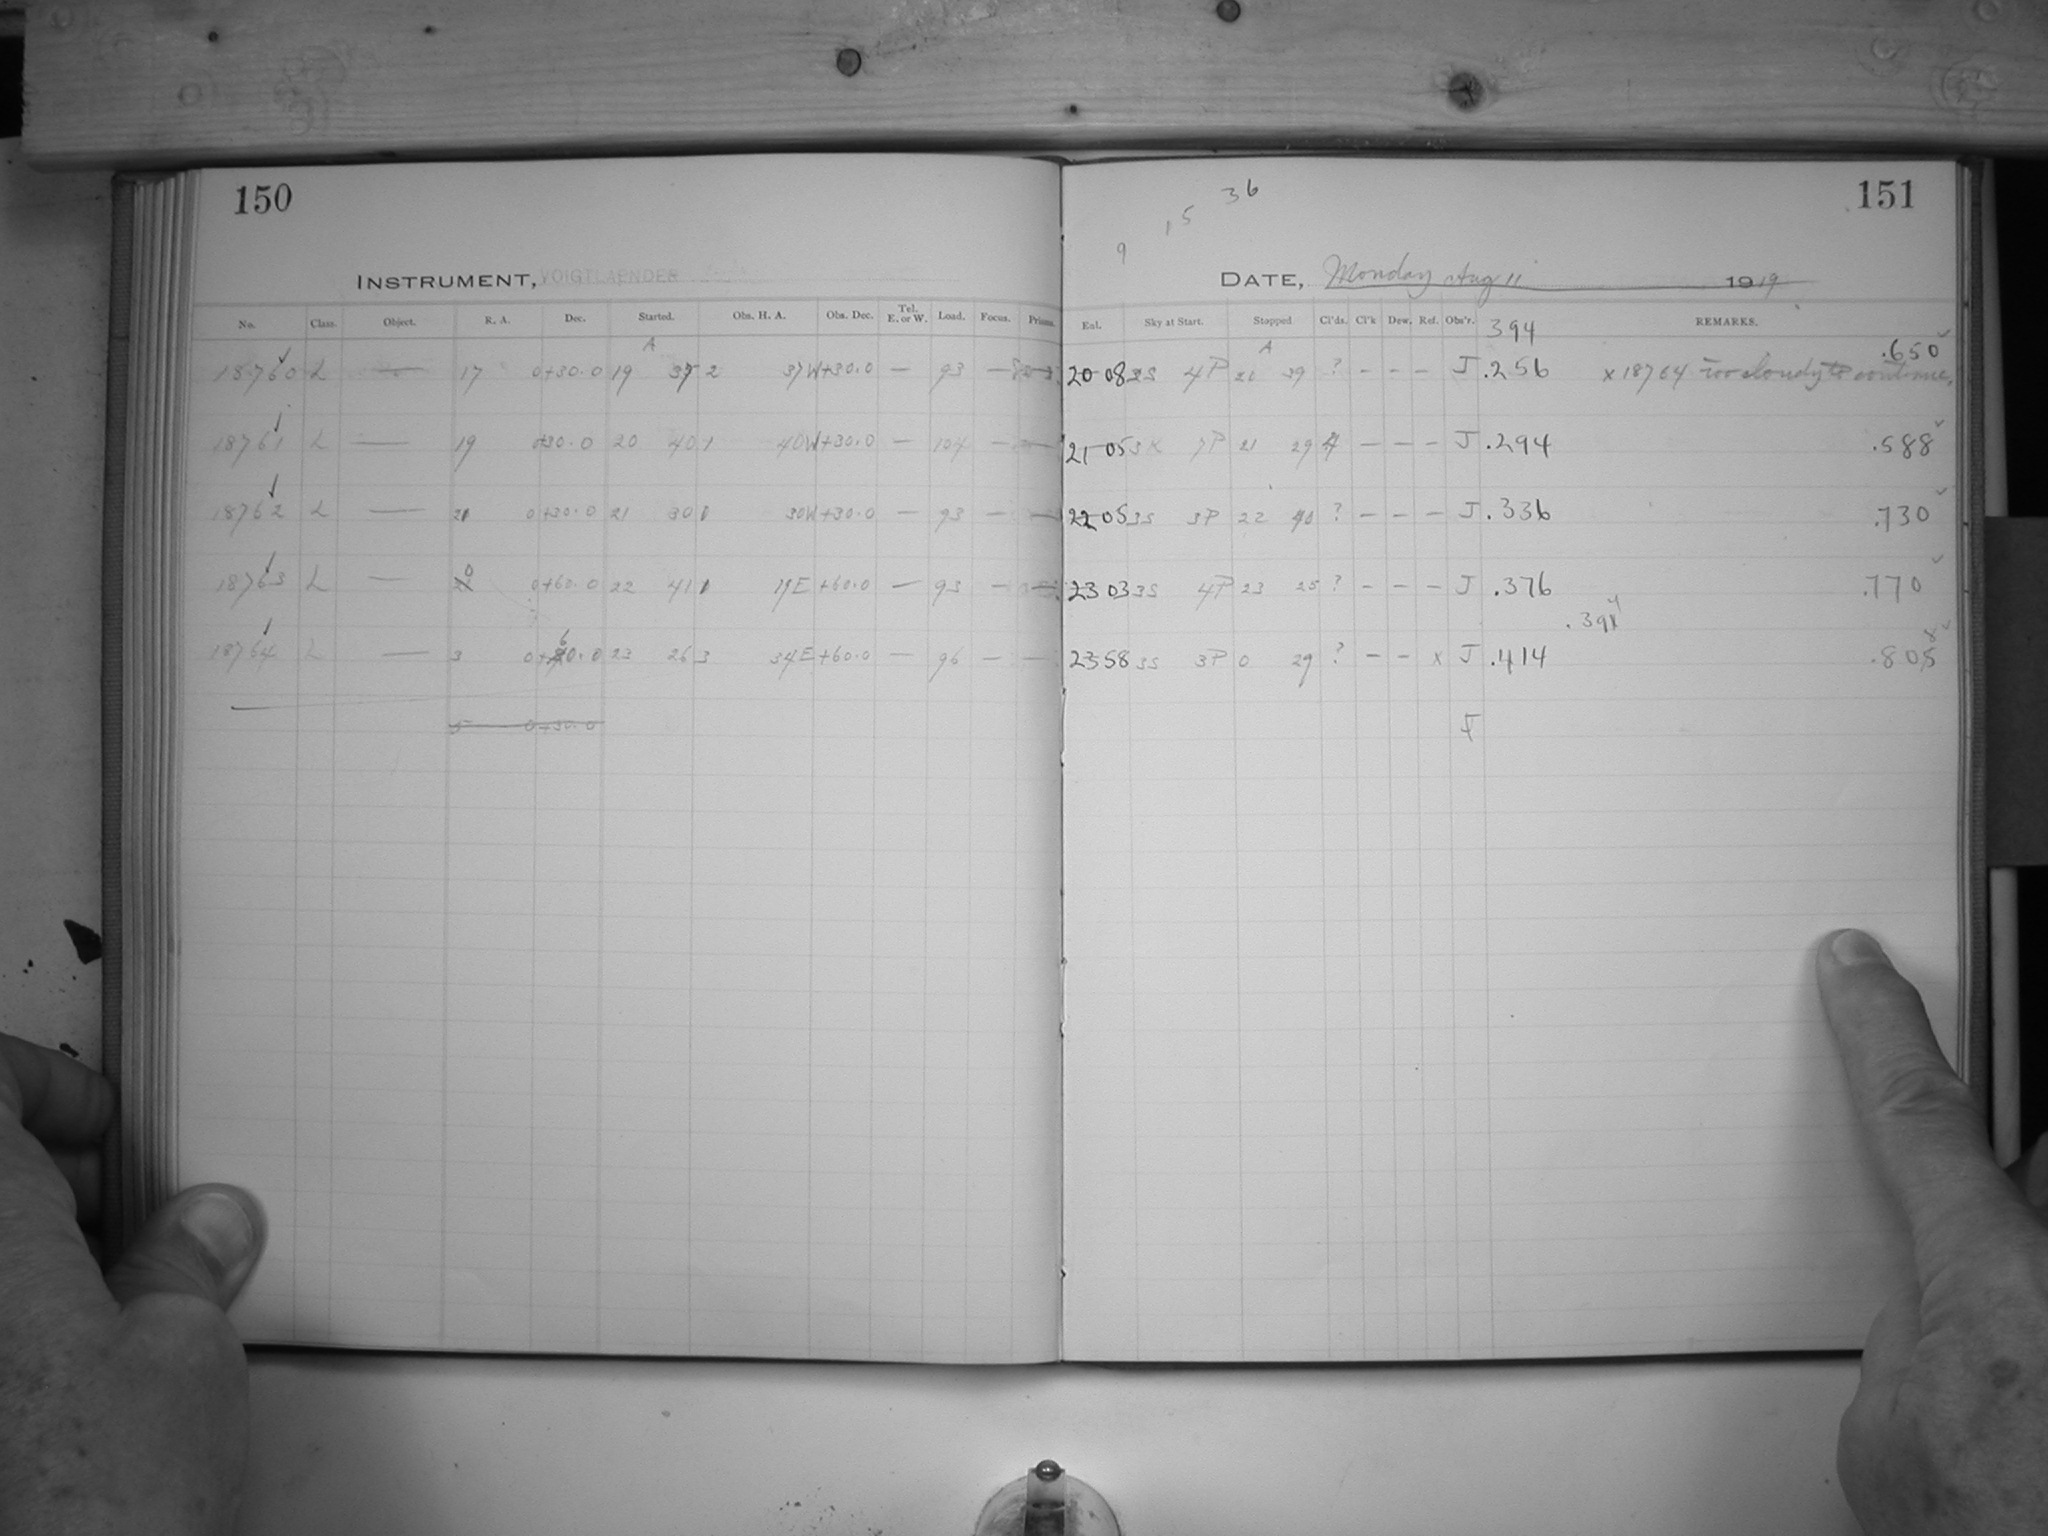 150
INSTRUMENT, VOIGTLAENDER
No. Class. Object. R. A. Dec. Started. Obs. H. A. Obs. Dec. Tel. E. or W. Load. Focus. Prisms.
A
18760 L — 17 0 +30.0 19 37 2 37W +30.0 — 93 —
18761 L — 19 +30.0 20 40 1 40W +30.0 — 104 — —
18762 L — 21 0 +30.0 21 30 1 30W +30.0 — 93 — —
18763 L — 0 0 +60.0 22 41 1 19E +60.0 — 93 — —
18764 L — 3 0 +60.0 23 26 3 34E +60.0 — 96 — —
5 0 +30.0
151
36
15
9
DATE, Monday Aug 11 1919
Eal. Sky at Start. Stopped Cl'ds. Cl'k Dew. Ref. Obs'r. 394 REMARKS.
A .650
20 08 3S 4P 20 39 ? - - - J .256 x 18764 too cloudy to continue.
21 05 3X 7P 21 29 4 - - - J .294 .588
22 05 3S 3P 22 40 ? - - - J .336 .730
23 03 3S 4P 23 25 ? - - - J .376 .770
.394
23 58 3S 3P 0 29 ? - - x J .414 .808
J